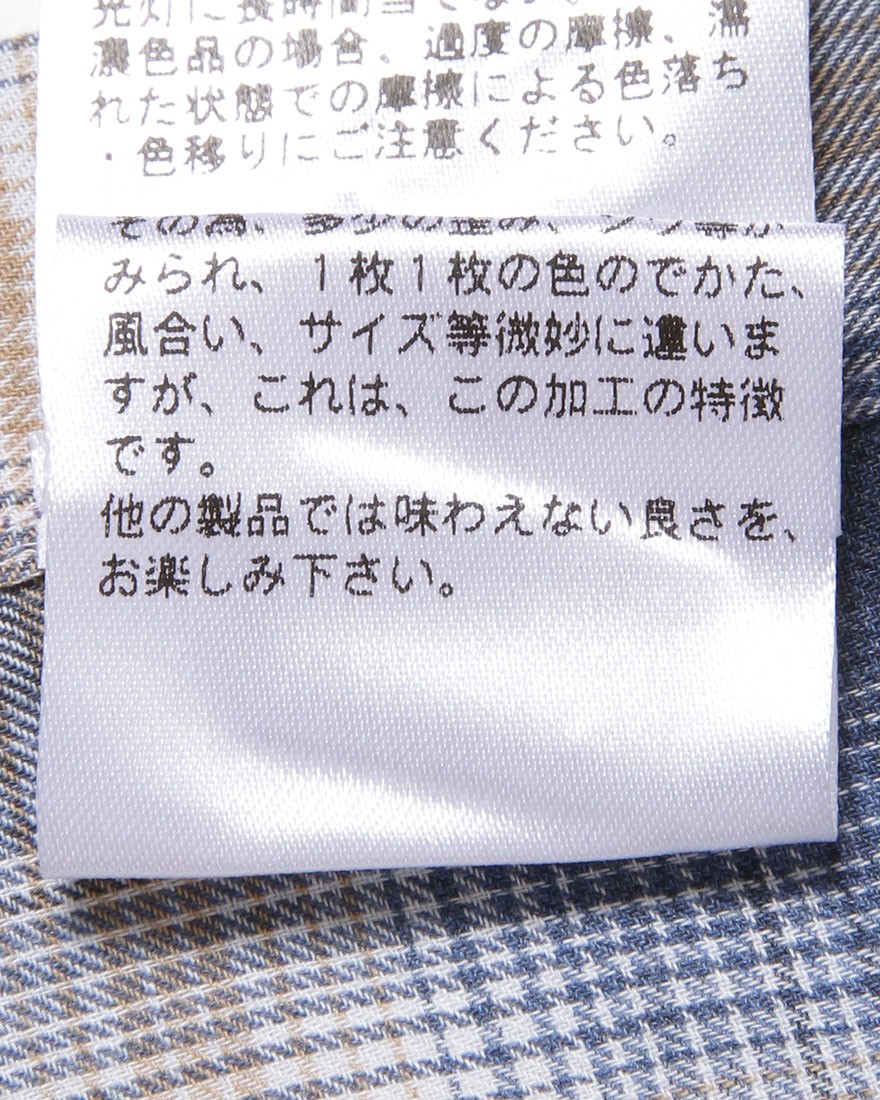 光灯に長時間当てない。
濃色品の場合、過度の摩擦、濡
れた状態での摩擦による色落ち
・色移りにご注意ください。
その為、多少の歪み、ソリ等が
みられ、１枚１枚の色のでかた、
風合い、サイズ等微妙に違いま
すが、これは、この加工の特徴
です。
他の製品では味わえない良さを、
お楽しみ下さい。